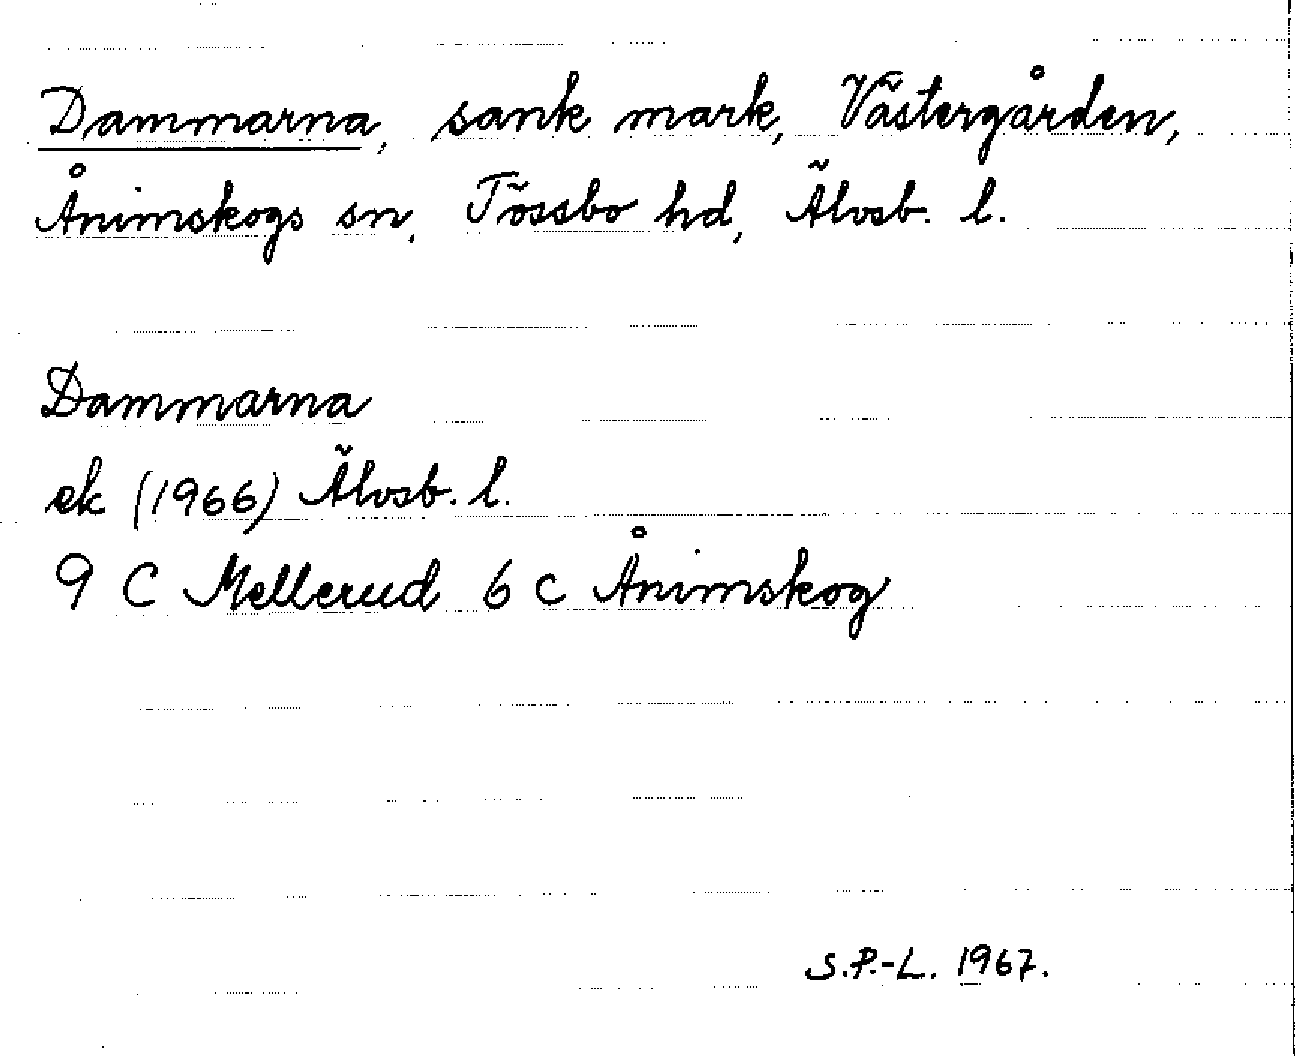 Dammarna, sank mark, Västergården,
Ånimskogs sn, Tössbo hd, Älvsb. l.
Dammarna
ek (1966) Älvsb. l.
9 C Mellerud 6 c Ånimskog
S.P.-L. 1967.